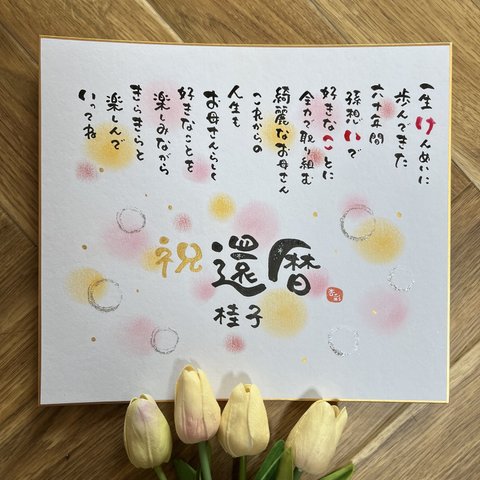 一生けんめいに
歩んできた
六十年間
孫想いで
好きなことに
全力で取り組む
綺麗なお母さん
これからの
人生も
お母さんらしく
好きなことを
楽しみながら
きらきらと
楽しんで
いってね
祝還暦
桂子